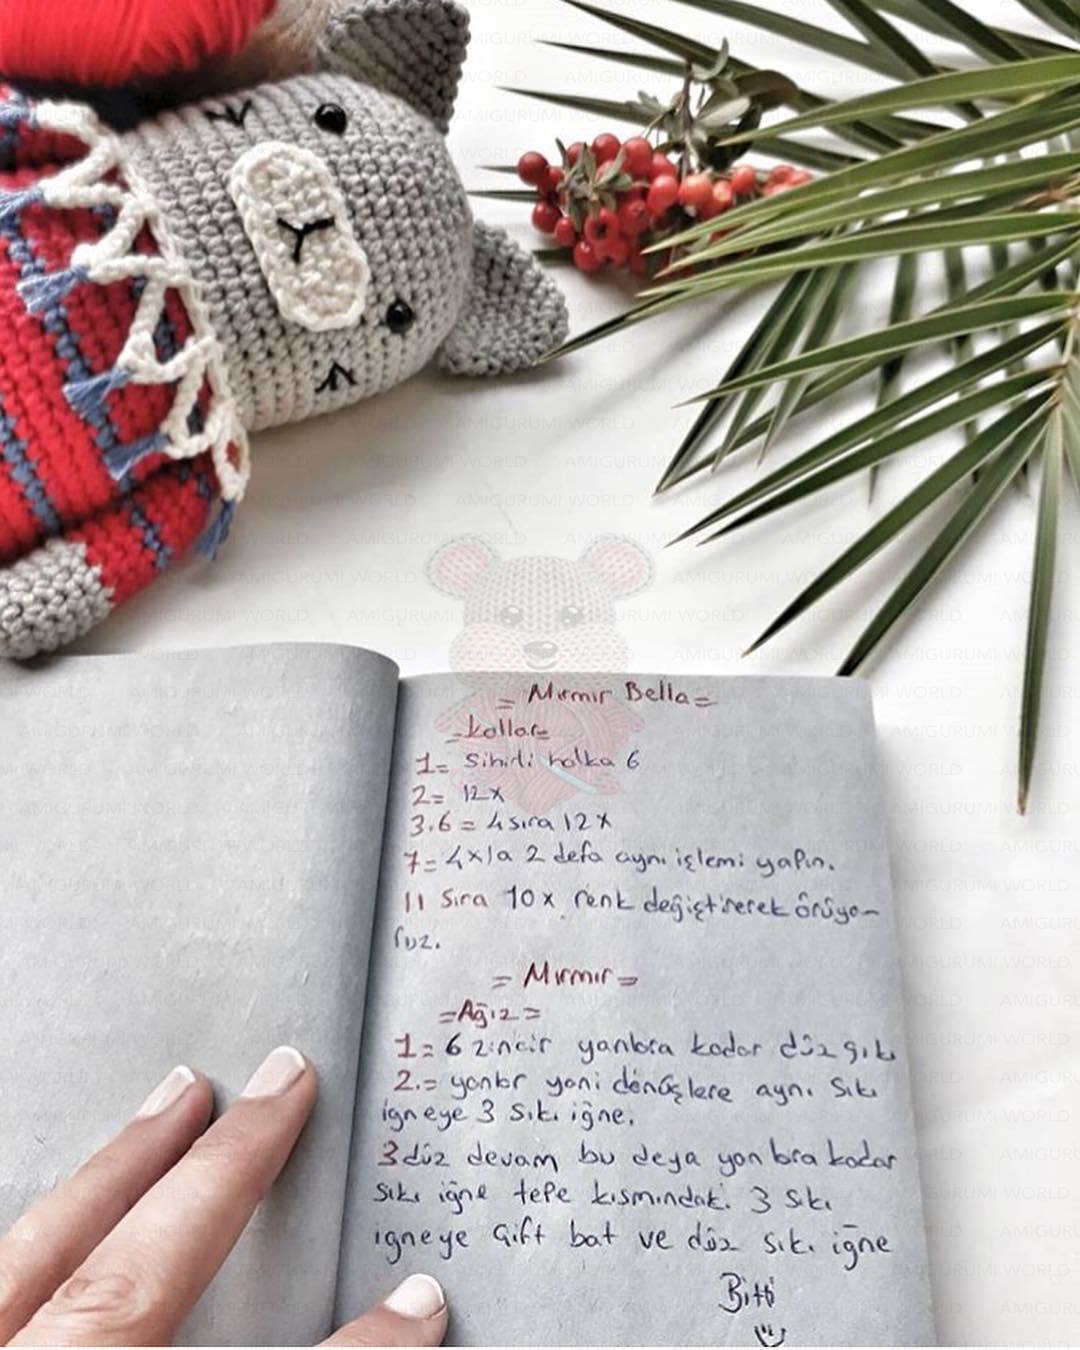 = Mırmır Bella =
=kollar=
1= Sihirli halka 6
2= 12x
3.6 = 4 sıra 12x
7= 4x1a 2 defa aynı işlemi yapın.
11 Sıra 10x renk değiştirerek örüyo-
ruz.
= Mırmır =
=Ağız=
1= 6 zincir yanlara kadar düz sıkı
2.= yanlar yani dönüşlere aynı sıkı
iğneye 3 sıkı iğne.
3 düz devam bu yanlara kadar
sıkı iğne tepe kısmındaki 3 sıkı
iğneye çift bat ve düz sıkı iğne
Bitti
AMIGURUMI WORLD